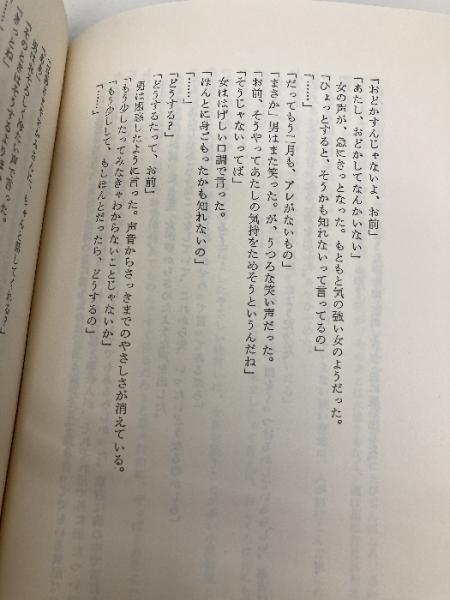 「おどかすんじゃないよ、お前」
「あたし、おどかしてなんかいない」
女の声が、急にきっとなった。もともと気の強い女のようだった。
「ひょっとすると、そうかも知れないって言ってるの」
「……」
「だってもう二月も、アレがないもの」
「まさか」男はまた笑った。が、うつろな笑い声だった。
「お前、そうやってあたしの気持をためそうというんだね」
「そうじゃないってば」
女ははげしい口調で言った。
「ほんとに身ごもったかも知れないの」
「……」
「どうする?」
「どうするたって、お前」
男は困惑したように言った。声音からさっきまでのやさしさが消えている。
「もう少したってみなきゃわからないことじゃないか」
「もう少しして、もしほんとだったら、どうするの」
「……」